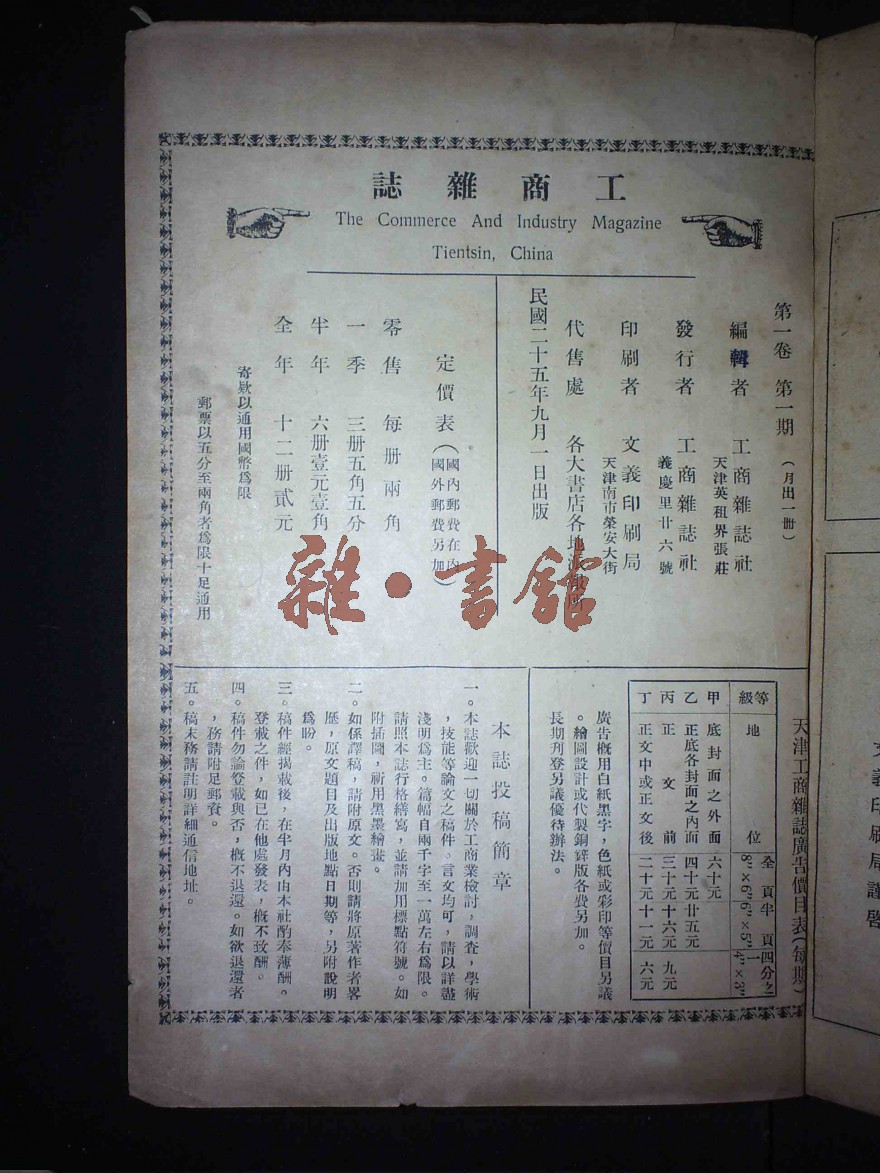 工商雜誌
The Commerce And Industry Magazine
Tientsin, China
第一卷 第一期 (月出一冊)
編輯者 工商雜誌社
天津英租界張莊
發行者 工商雜誌社
義慶里廿六號
印刷者 文義印刷局
天津南市榮安大街
代售處 各大書店各地
民國二十五年九月一日出版
定價表(國內郵費在內
國外郵費另加)
零售 每册兩角
一季 三册五角五分
半年 六册壹元壹角
全年 十二册貳元
寄欵以通用國幣爲限
郵票以五分至兩角者爲限十足通用
雜·書館
天津工商雜誌廣告價目表(每期)
等級 地位 全頁8"×6" 半頁6"×5" 四分之一4"×3"
甲 底封面之外面 六十元
乙 正底各封面之內面 四十元 廿五元
丙 正文前 三十元 十六元 九元
丁 正文中或正文後 二十元 十一元 六元
廣告概用白紙黑字,色紙或彩印等價目另議
。繪圖設計或代製銅鋅版各費另加。
長期刊登另議優待辦法。
本誌投稿簡章
一。本誌歡迎一切關於工商業檢討,調查,學術
,技能等論文之稿件。言文均可,請以詳盡
淺明爲主。篇幅自兩千字至一萬左右爲限。
請照本誌行格繕寫,並請加用標點符號。如
附插圖,祈用黑墨繪畫。
二。如係譯稿,請附原文。否則請將原著作者畧
歷,原文題目及出版地點日期等,另附說明
爲盼。
三。稿件經揭載後,在半月內由本社酌奉薄酬。
登載之件,如已在他處發表,概不致酬。
四。稿件勿論登載與否,概不退還。如欲退還者
,務請附足郵資。
五。稿末務請註明詳細通信地址。
文義印刷局謹啓